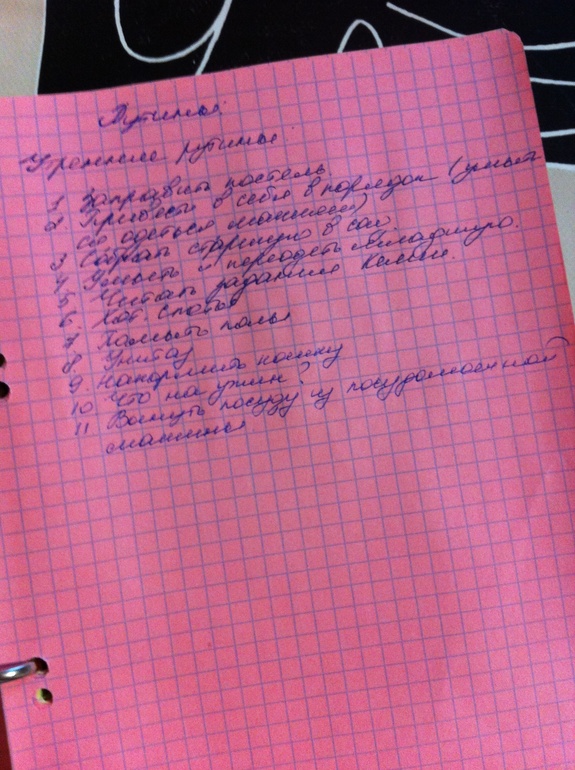 Рутины.
Утренние рутины.
1 Заправить постель
2 Привести себя в порядок (умыть
ся одеться макияж)
3 Собрать старшую в сад.
4 Умыть и переодеть младшую.
5 Читать задания
6. Хот. споты
7 Помыть полы
8 Унитаз
9. Накормить кошку
10 Что на ужин?
11 Вынуть посуду из посудомоечной
машины